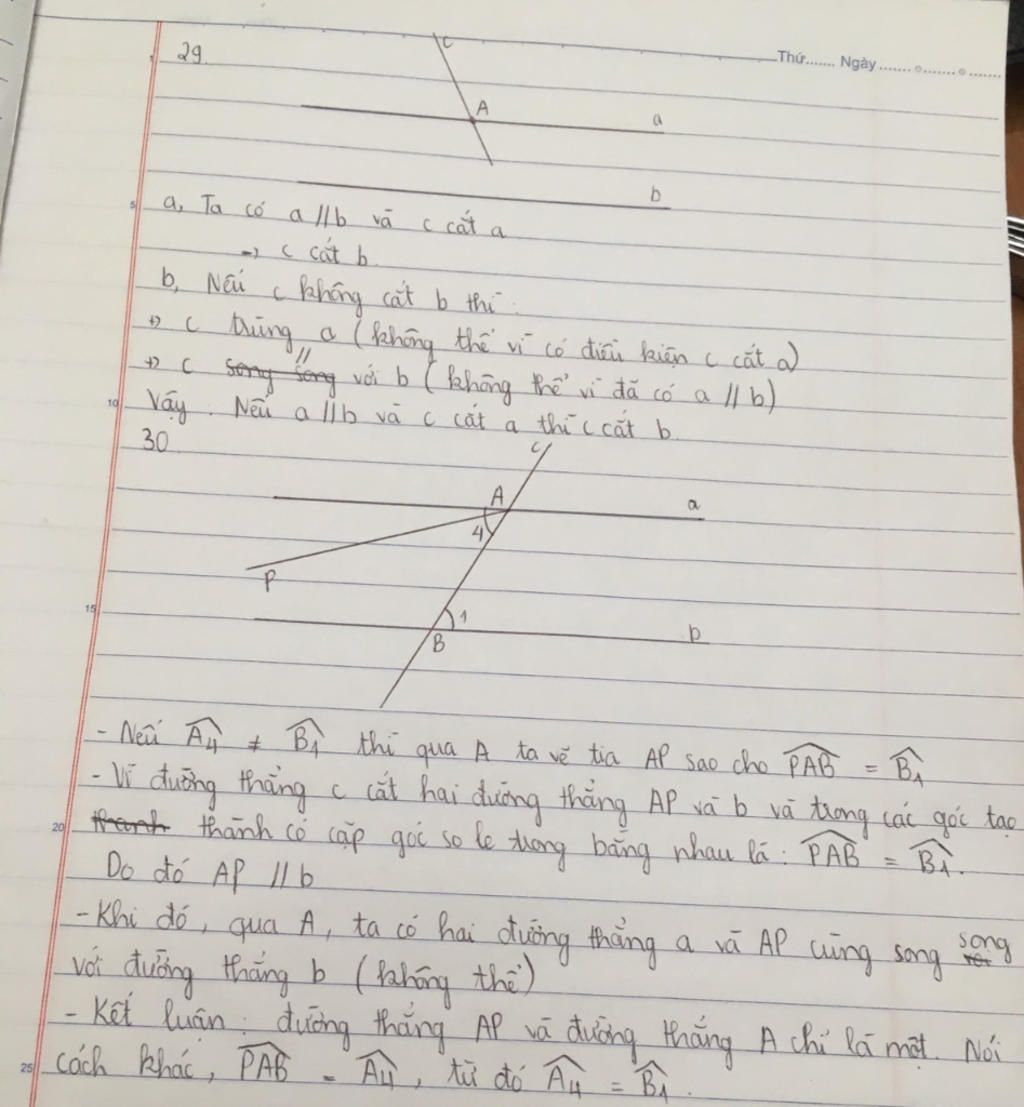 Thứ....... Ngày ....... o....... o .......
29
c
A
a
b
5
a, Ta có a // b và c cắt a
=> c cắt b.
b, Nếu c không cắt b thì :
+) c trùng a (không thể vì có điều kiện c cắt a)
//
+) c song song với b (không thể vì đã có a // b)
10
Vậy : Nếu a // b và c cắt a thì c cắt b.
30
c
A
a
4
P
15
1
B
b
- Nếu A4 ≠ B1 thì qua A ta vẽ tia AP sao cho PAB = B1
- Vì đường thẳng c cắt hai đường thẳng AP và b và trong các góc tạo
20
thanh thành có cặp góc so le trong bằng nhau là : PAB = B1.
Do đó AP // b
- Khi đó, qua A, ta có hai đường thẳng a và AP cùng song song
với đường thẳng b (không thể)
- Kết luận : đường thẳng AP và đường thẳng A chỉ là một. Nói
25
cách khác, PAB = A4, từ đó A4 = B1.